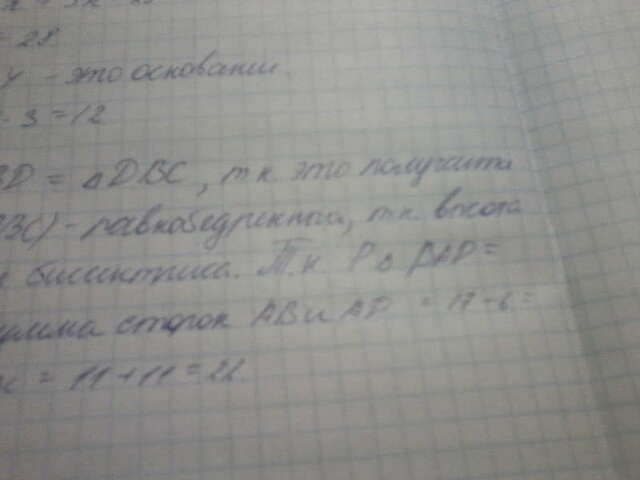 = 28
– это основание.
· 3 = 12
BD = △DBC, т.к. это получается
– равнобедренный, т.к. высота
биссиктриса. Т.к. P△ BAD =
сумма сторон AB и AD = 17 – 6 =
= 11 + 11 = 22.